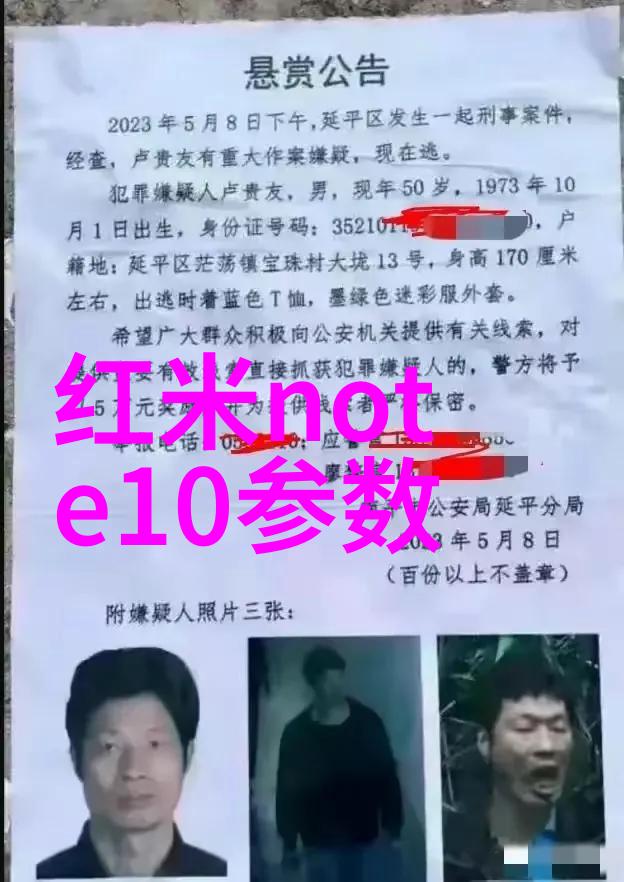 悬赏公告
2023年5月8日下午,延平区发生一起刑事案件,
经查，卢贵友有重大作案嫌疑，现在逃。
犯罪嫌疑人卢贵友，男，现年50岁，1973年10
月1日出生，身份证号码：3521011，户
籍地：延平区茫荡镇宝珠村大垅13号，身高170厘米
左右，出逃时着蓝色T恤，墨绿色迷彩服外套。
希望广大群众积极向公安机关提供有关线索，对
直接抓获犯罪嫌疑人的，警方将予
5万元奖
保密。
红米not
e10参数
举报电话
公安局延平分局
2023年5月8日
（百份以上不盖章）
附嫌疑人照片三张：